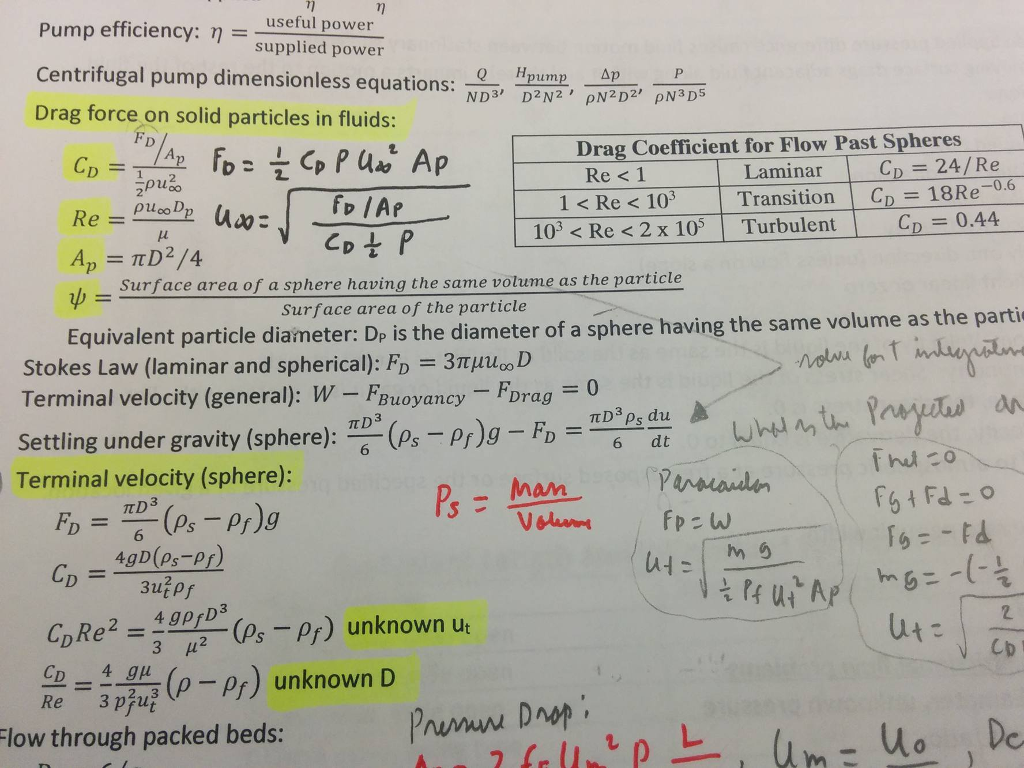 η η
Pump efficiency: η = useful power / supplied power
Centrifugal pump dimensionless equations: Q/ND³, H_pump/D²N², Δp/ρN²D², P/ρN³D⁵
Drag force on solid particles in fluids:
C_D = (F_D/A_p)/(½ρu∞²) F_D = ½ C_D ρ U∞² A_p
Re = ρu∞D_p/μ U∞ = √((F_D/A_p)/(C_D ½ ρ))
A_p = πD²/4
ψ = Surface area of a sphere having the same volume as the particle / Surface area of the particle
Drag Coefficient for Flow Past Spheres
Re < 1 Laminar C_D = 24/Re
1 < Re < 10³ Transition C_D = 18Re^−0.6
10³ < Re < 2 x 10⁵ Turbulent C_D = 0.44
Equivalent particle diameter: D_P is the diameter of a sphere having the same volume as the
Stokes Law (laminar and spherical): F_D = 3πμu∞D
Terminal velocity (general): W − F_Buoyancy − F_Drag = 0
Settling under gravity (sphere): πD³/6 (ρ_s − ρ_f)g − F_D = πD³ρ_s/6 du/dt
solve for t
What is the Projected
Terminal velocity (sphere):
F_D = πD³/6 (ρ_s − ρ_f)g
C_D = 4gD(ρ_s−ρ_f)/3u_t²ρ_f
C_D Re² = 4/3 gρ_f D³/μ² (ρ_s − ρ_f) unknown u_t
C_D/Re = 4/3 gμ/p_f²u_t³ (ρ − ρ_f) unknown D
ρ_s = Mass / Volume
F_D = W
U_t = √(m g / ½ ρ_f U_t² A_p)
F net = 0
F_g + F_d = 0
F_g = − F_d
m g = −(−½
U_t = √ 2 / C_D
Flow through packed beds:
Pressure Drop:
L , U_m = U_o , D